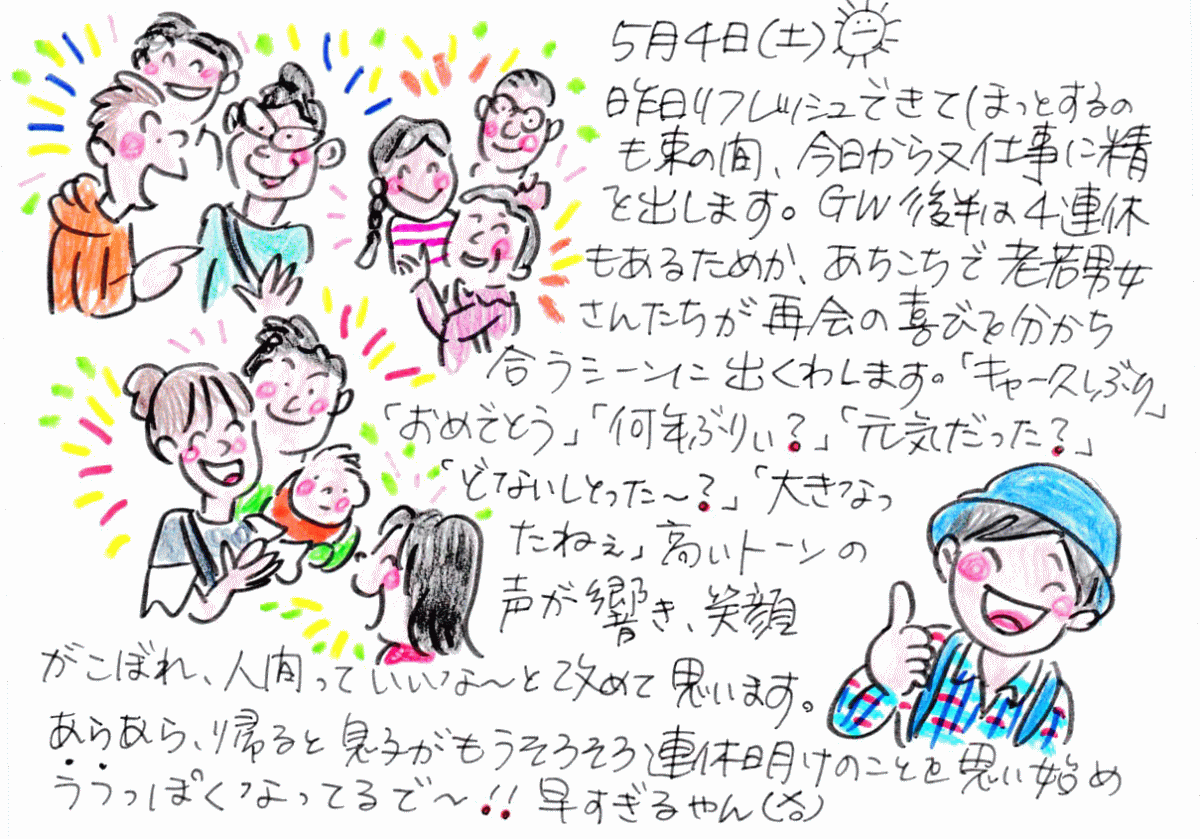 5月4日(土)
昨日リフレッシュできてほっとするの
も束の間、今日から又仕事に精
を出します。GW後半は4連休
もあるためか、あちこちで老若男女
さんたちが再会の喜びを分かち
合うシーンに出くわします。「キャー久しぶり」
「おめでとう」「何年ぶりぃ?」「元気だった?」
「どないしとった〜?」「大きなっ
たねぇ」高いトーンの
声が響き、笑顔
がこぼれ、人間っていいな〜と改めて思います。
あらあら、帰ると息子がもうそろそろ連休明けのことを思い始め
うつっぽくなってるで〜!!早すぎるやん(笑)